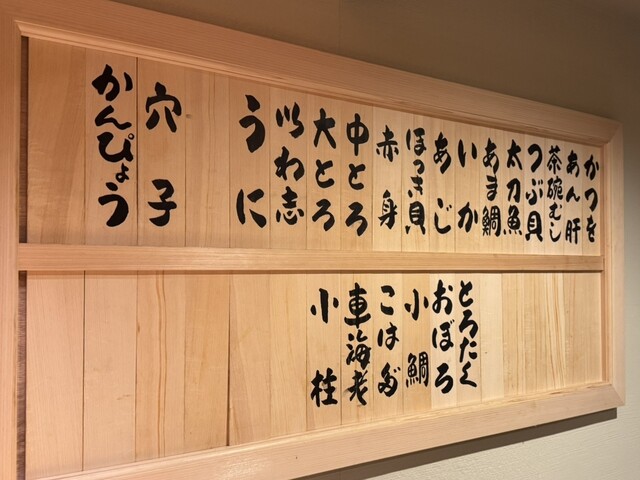 かつを
あん肝
茶碗むし
つぶ貝
太刀魚
あま鯛
いか
あじ
ほっき貝
赤身
中とろ
大とろ
いわ志
うに
穴子
かんぴょう
とろたく
おぼろ
小鯛
こはだ
車海老
小柱